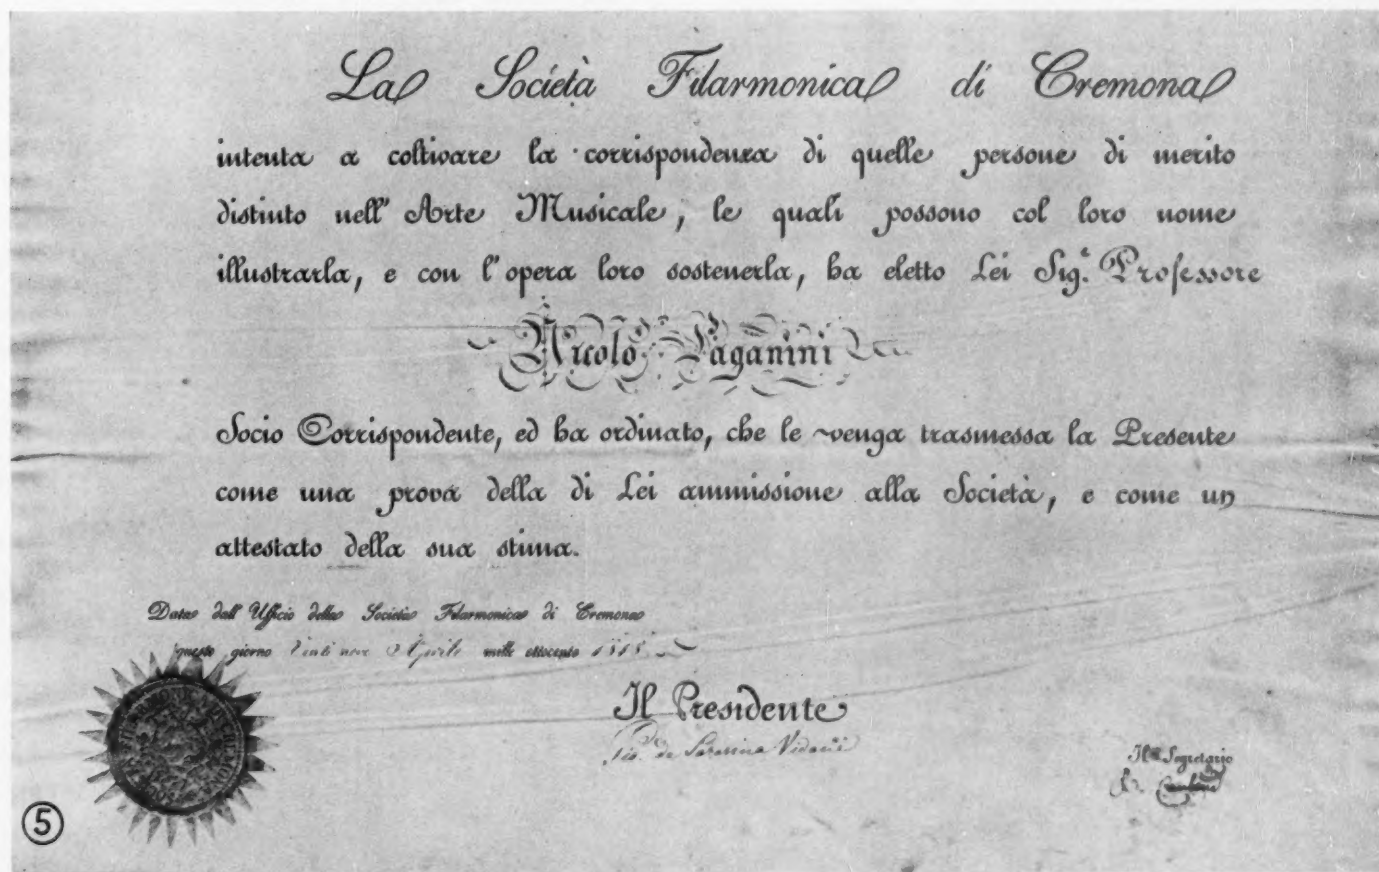 La Società Filarmonica di Cremona
intenta a coltivare la corrispondenza di quelle persone di merito
distinto nell' Arte Musicale, le quali possono col loro nome
illustrarla, e con l'opera loro sostenerla, ha eletto Lei Sig.ͬ Professore
Nicolò Paganini
Socio Corrispondente, ed ha ordinato, che le venga trasmessa la Presente
come una prova della di Lei ammissione alla Società, e come un
attestato della sua stima.
Data dall' Ufficio della Società Filarmonica di Cremona
questo giorno Aprile mille ottocento
Il Presidente
Il Segretario
5